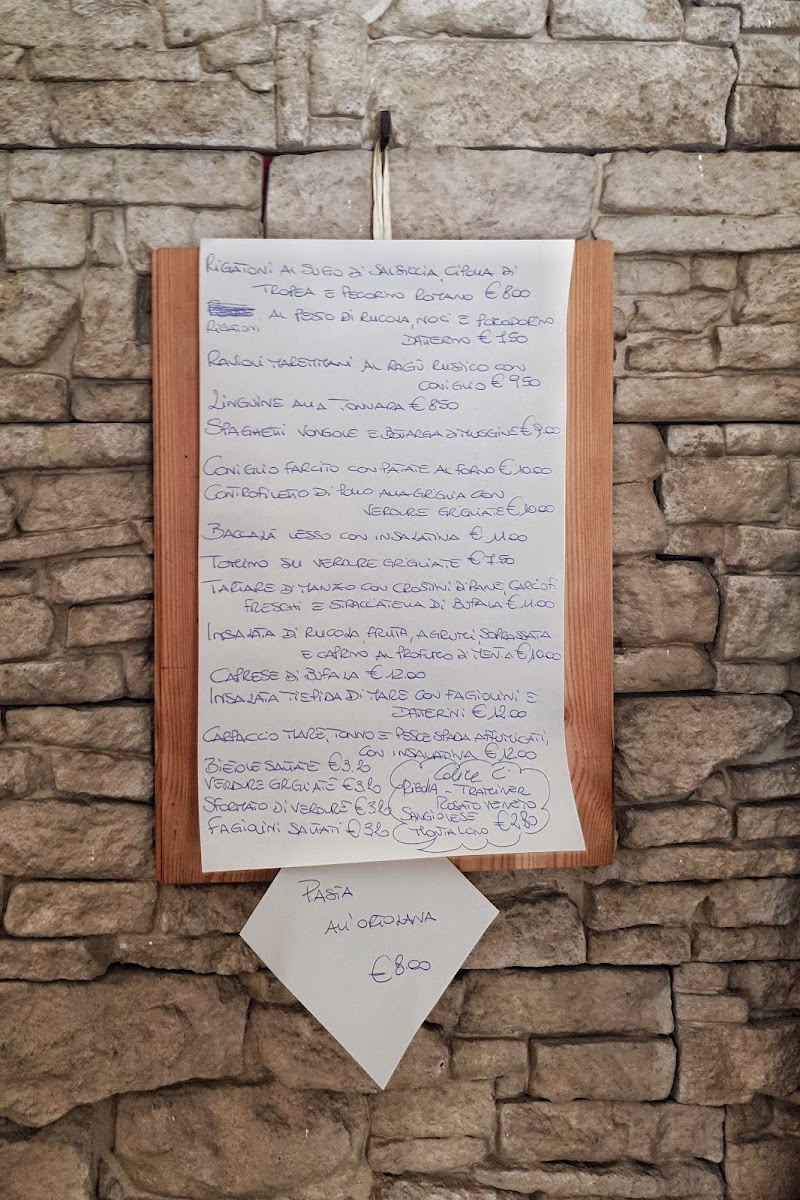 RIGATONI AL SUGO DI SALSICCIA, CIPOLLA DI
TROPEA E PECORINO ROMANO €8.00
RIGATONI AL PESTO DI RUCOLA, NOCI E POMODORINO
DATTERINO € 7.50
RAVIOLI MAREMMANI AL RAGÙ RUSTICO CON
CONIGLIO € 9.50
LINGUINE ALLA TONNARA € 8.50
SPAGHETTI VONGOLE E BOTARGA DI MUGGINE € 9.00
CONIGLIO FARCITO CON PATATE AL FORNO € 10.00
CONTROFILETTO DI POLLO ALLA GRIGLIA CON
VERDURE GRIGLIATE € 10.00
BACCALÀ LESSO CON INSALATINA € 11.00
TOMINO SU VERDURE GRIGLIATE € 7.50
TARTARE DI MANZO CON CROSTINI DI PANE, CARCIOFI
FRESCHI E STRACCIATELLA DI BUFALA € 11.00
INSALATA DI RUCOLA, FRUTTA, AGRUMI, SOPRASSATA
E CAPRINO AL PROFUMO DI MENTA € 10.00
CAPRESE DI BUFALA € 12.00
INSALATA TIEPIDA DI MARE CON FAGIOLINI E
DATTERINI € 12.00
CARPACCIO MARE, TONNO E PESCE SPADA AFFUMICATI,
CON INSALATINA € 12.00
BIETOLE SALTATE € 3,20
VERDURE GRIGLIATE € 3,20
SFORMATO DI VERDURE € 3,20
FAGIOLINI SALTATI € 3,20
CALICE
RIBOLLA - TRAMINER
ROSATO VENETO
SANGIOVESE € 2,80
PASTA
ALL'ORTOLANA
€ 8.00